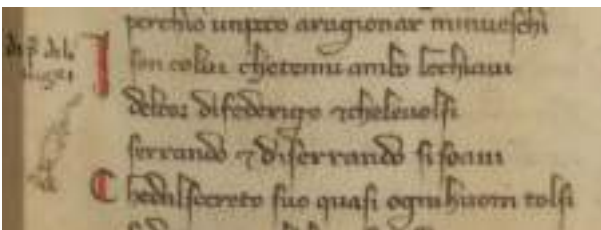 perchio unpoco aragionar minueschi
Ison colui chetenni ambo lechiaui
delcor difederigo ⁊cheleuolsi
serrando ⁊ diserrando sisoaui
Chedalsecreto suo quasi ognihuom tolsi